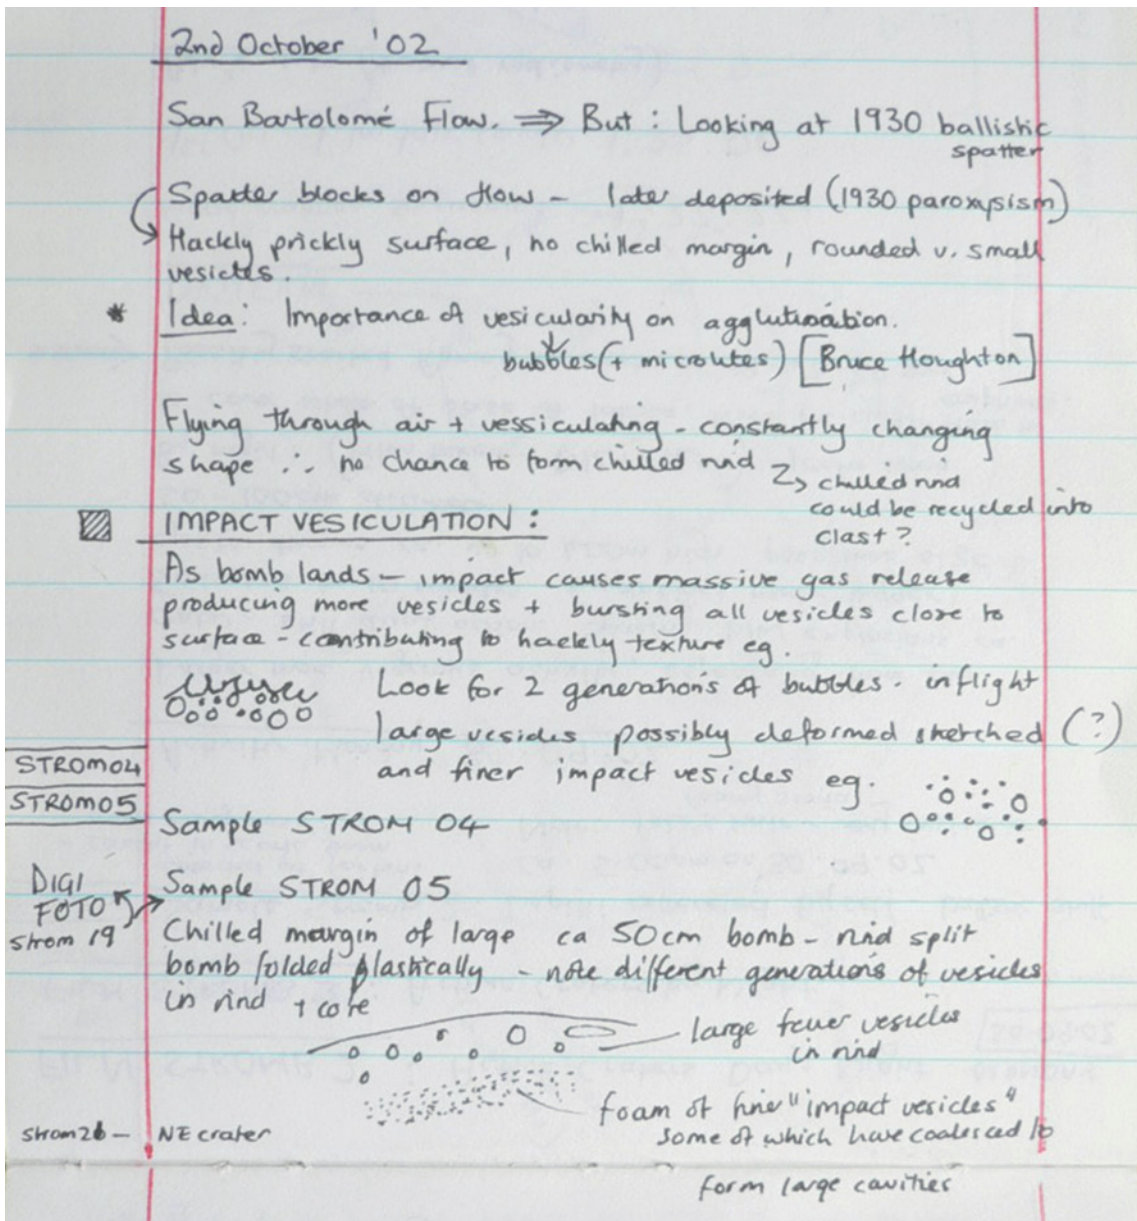 2nd October '02
San Bartolomé Flow. ⇒ But : Looking at 1930 ballistic
spatter
Spatter blocks on flow - later deposited (1930 paroxysism)
Hackly prickly surface, no chilled margin, rounded v. small
vesicles.
* Idea: Importance of vesicularity on agglutination.
bubbles (+ microlites) [Bruce Houghton]
Flying through air + vessiculating - constantly changing
shape ∴ no chance to form chilled rind
→ chilled rind
could be recycled into
clast?
IMPACT VESICULATION :
As bomb lands - impact causes massive gas release
producing more vesicles + bursting all vesicles close to
surface - contributing to hackly texture eg.
Look for 2 generations of bubbles - inflight
large vesicles possibly deformed stretched (?)
and finer impact vesicles eg.
STROM04
STROM05
Sample STROM 04
DIGI
FOTO
strom 19
Sample STROM 05
Chilled margin of large ca 50cm bomb - rind split
bomb folded plastically - note different generations of vesicles
in rind + core
large fewer vesicles
in rind
foam of fine "impact vesicles"
some of which have coalesced to
form large cavities
Strom26 - NE crater